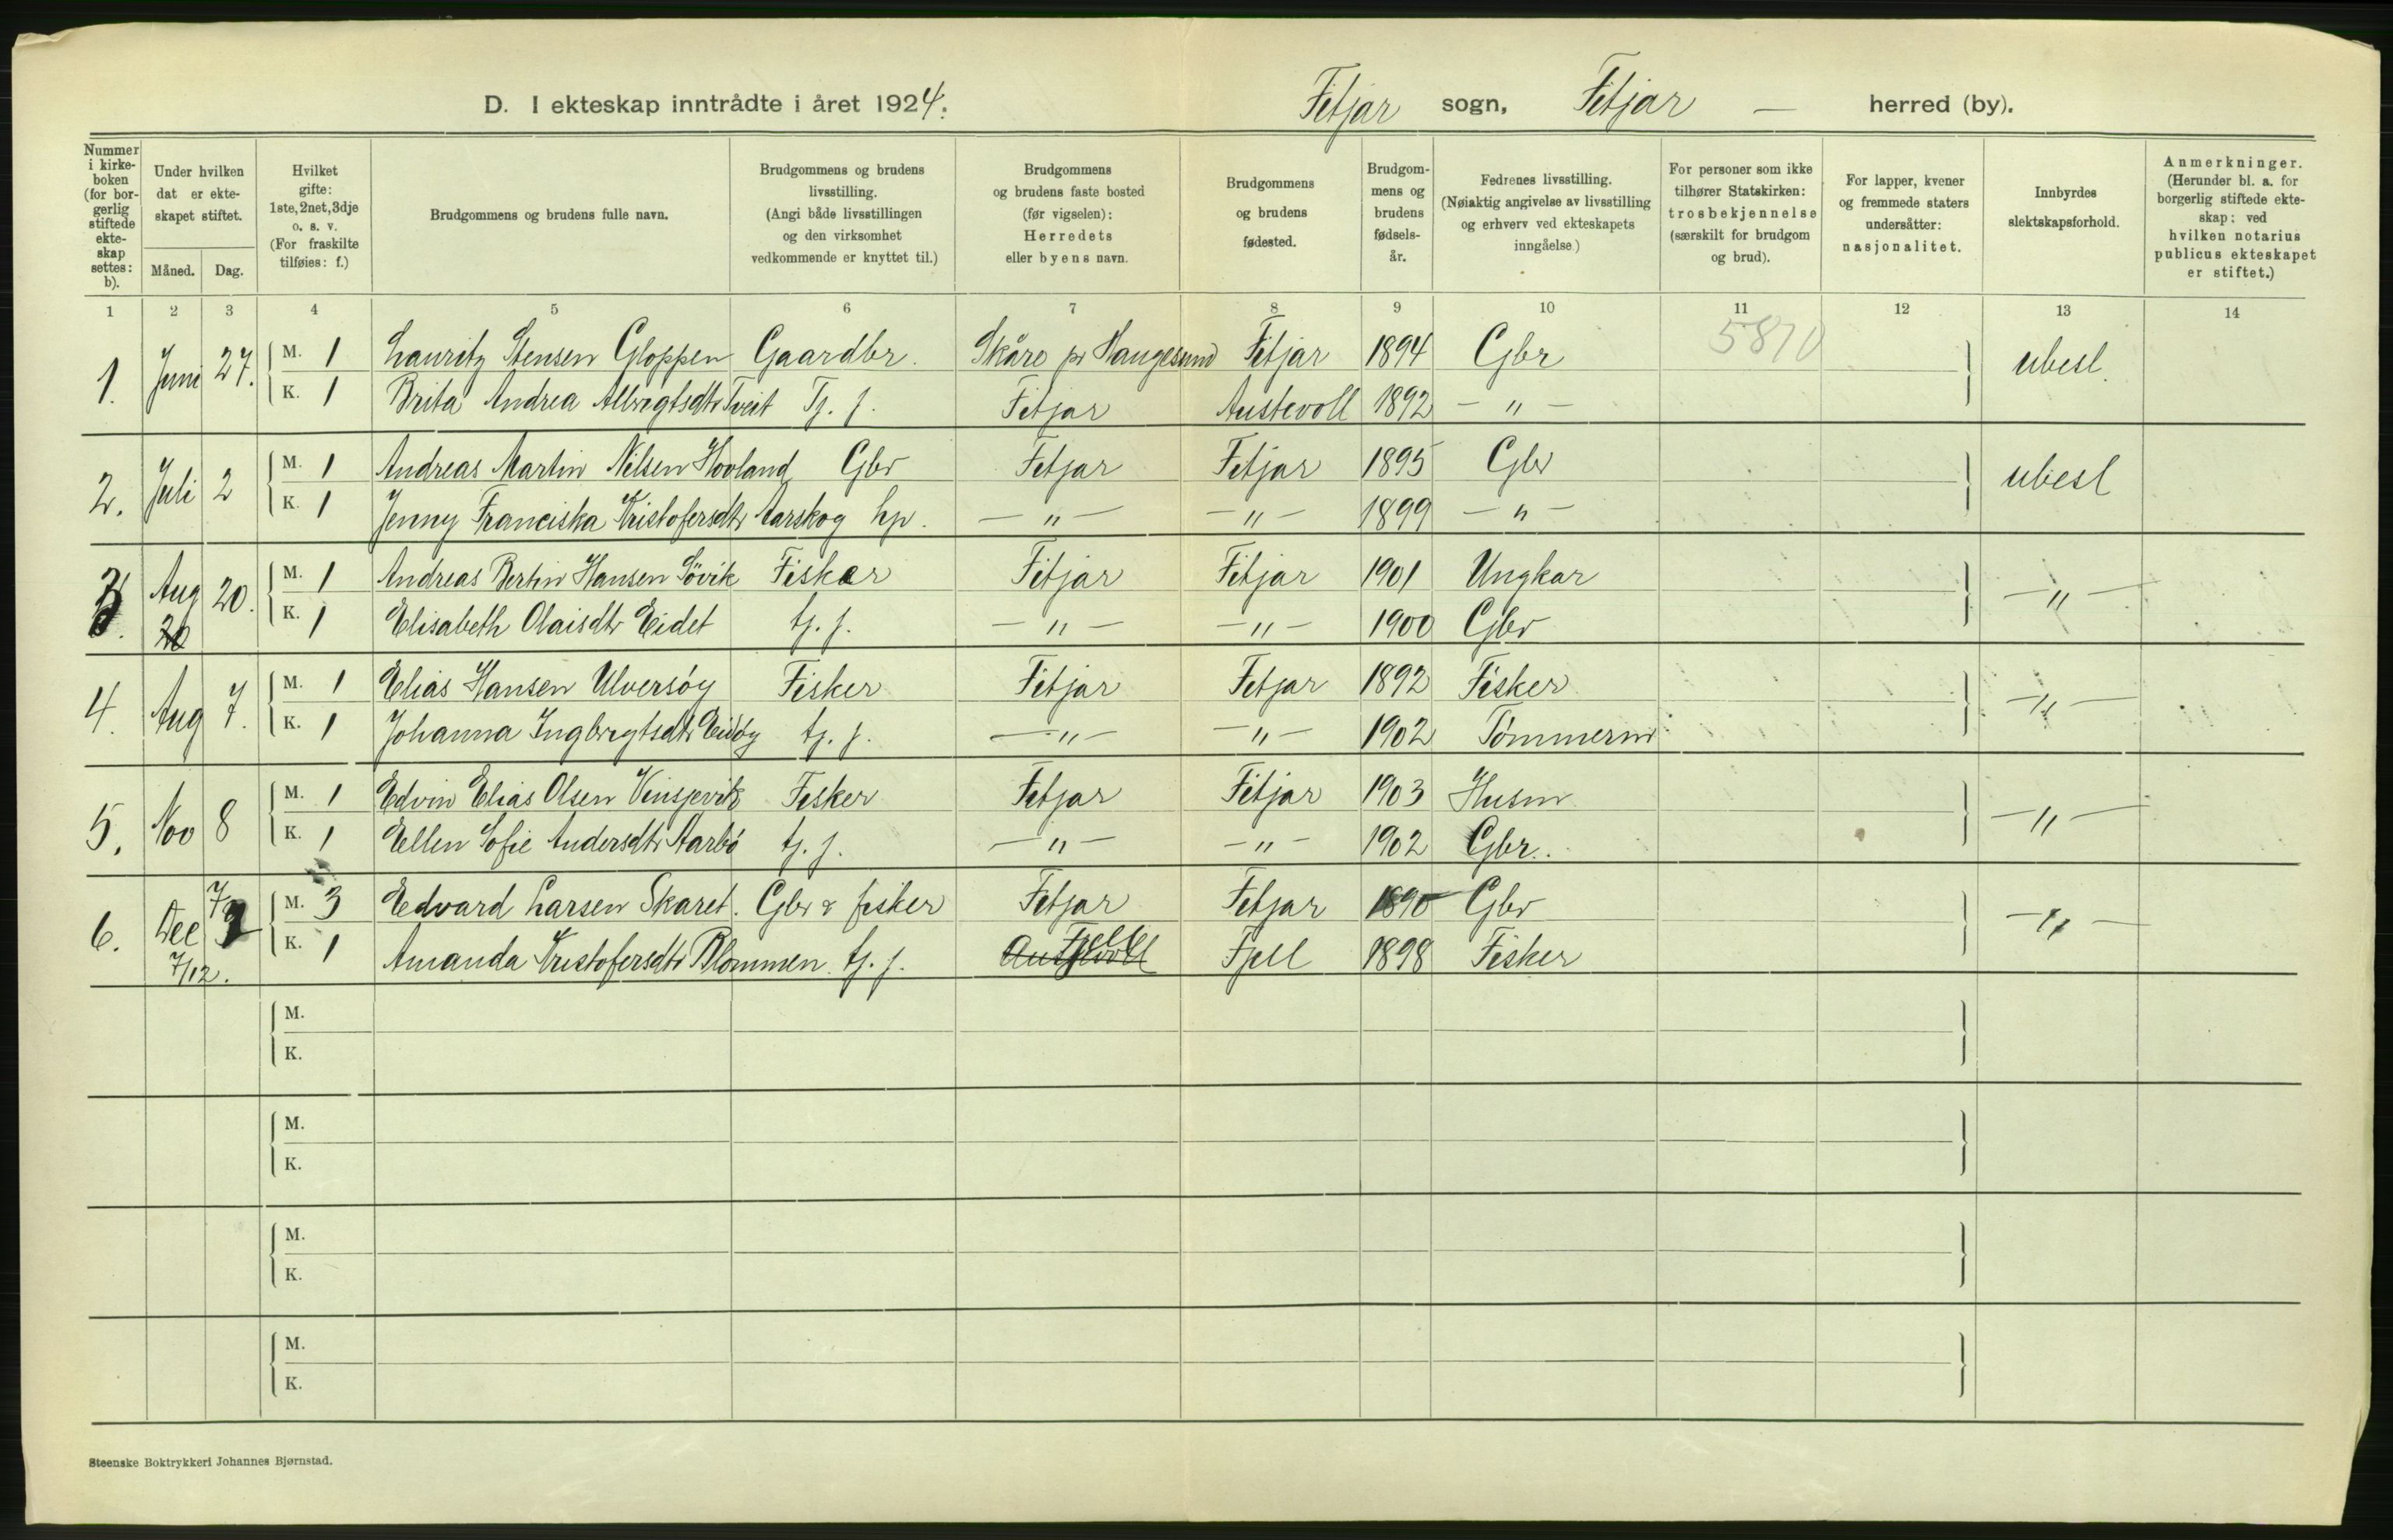 D. I ekteskap inntrådte i året 1924. Fitjar sogn, Fitjar — herred (by).
Nummer i kirke-boken (for bor-gerlig stiftede ekte-skap settes: b).
Under hvilken dat er ekte-skapet stiftet.
Måned. Dag.
Hvilket gifte: 1ste, 2net, 3dje o. s. v. (For fraskilte tilføies: f.)
Brudgommens og brudens fulle navn.
Brudgommens og brudens livsstilling. (Angi både livsstillingen og den virksomhet vedkommende er knyttet til.)
Brudgommens og brudens faste bosted (før vigselen): Herredets eller byens navn.
Brudgommens og brudens fødested.
Brudgom-mens og brudens fødsels-år.
Fedrenes livsstilling. (Nøiaktig angivelse av livsstilling og erhverv ved ekteskapets inngåelse.)
For personer som ikke tilhører Statskirken: trosbekjennelse (særskilt for brudgom og brud).
For lapper, kvener og fremmede staters undersåtter: nasjonalitet.
Innbyrdes slektskapsforhold.
Anmerkninger. (Herunder bl. a. for borgerlig stiftede ekte-skap: ved hvilken notarius publicus ekteskapet er stiftet.)
1 2 3 4 5 6 7 8 9 10 11 12 13 14
5810
1. Juni 27. M. 1 Lauritz Stensen Gloppen Gaardbr. Skåre pr Haugesund Fitjar 1894 Gbr ubesl.
K. 1 Brita Andrea Albrigtsdtr Tveit Tj. p. Fitjar Austevoll 1892 — " —
2. Juli 2 M. 1 Andreas Martin Nilsen Hovland Gbr Fitjar Fitjar 1895 Gbr ubesl
K. 1 Jenny Franciska Kristofersdtr Aarskog hp. — " — — " — 1899 — " —
3. Aug 20. M. 1 Andreas Bertin Hansen Søvik Fisker Fitjar Fitjar 1901 Ungkar — " —
20 K. 1 Elisabeth Olaisdtr Eidet tj. p. — " — — " — 1900 Gbr
4. Aug 7. M. 1 Elias Hansen Ulversøy Fisker Fitjar Fitjar 1892 Fisker — " —
K. 1 Johanna Ingbrigtsdtr Eidøy tj. p. — " — — " — 1902 Tømmerm
5. Nov 8 M. 1 Edvin Elias Olsen Vinsjevik Fisker Fitjar Fitjar 1903 Husm — " —
K. 1 Ellen Sofie Andersdtr Aarbø tj. p. — " — — " — 1902 Gbr.
6. Dec 7 M. 3 Edvard Larsen Skaret. Gbr & fisker Fitjar Fitjar 1890 Gbr — " —
7/12. K. 1 Amanda Kristofersdtr Blommen tj. p. Austevoll Fjell Fjell 1898 Fisker
M.
K.
M.
K.
M.
K.
M.
K.
Steenske Boktrykkeri Johannes Bjørnstad.